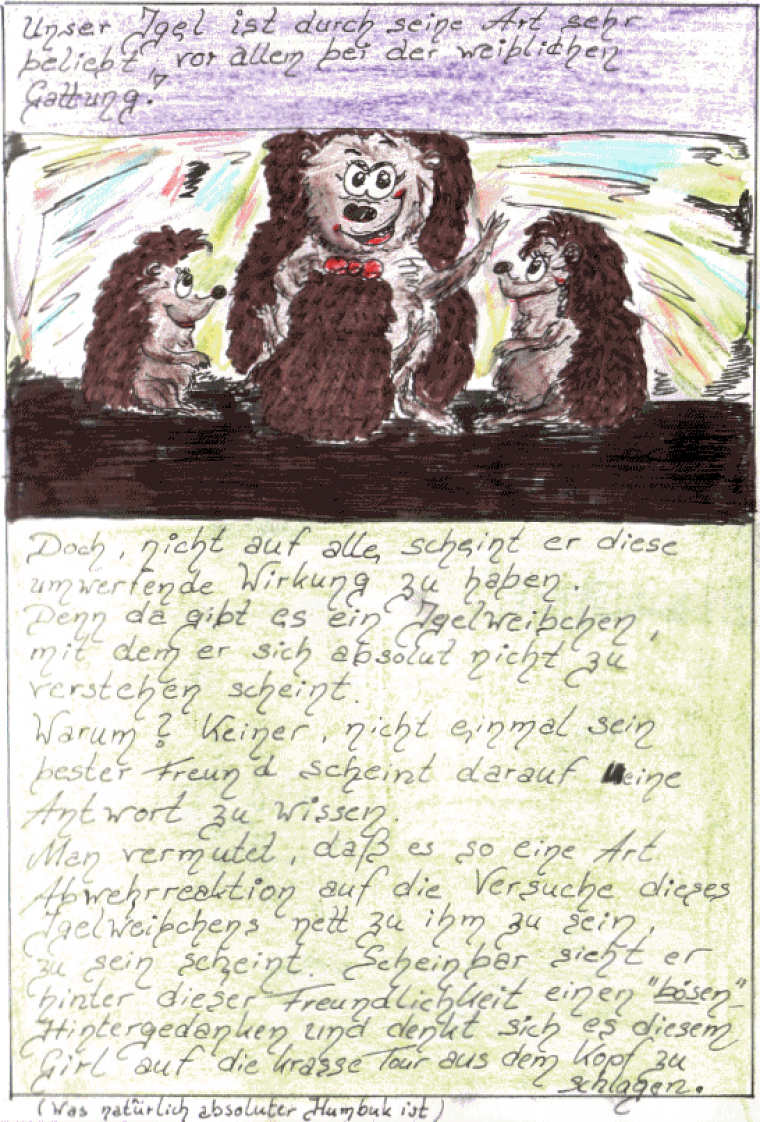 Unser Igel ist durch seine Art sehr
beliebt, vor allem bei der weiblichen
Gattung.
Doch, nicht auf alle, scheint er diese
umwerfende Wirkung zu haben.
Denn da gibt es ein Igelweibchen,
mit dem er sich absolut nicht zu
verstehen scheint.
Warum? Keiner, nicht einmal sein
bester Freund scheint darauf eine
Antwort zu wissen.
Man vermutet, daß es so eine Art
Abwehrreaktion auf die Versuche dieses
Igelweibchens nett zu ihm zu sein,
zu sein scheint. Scheinbar sieht er
hinter dieser Freundlichkeit einen "bösen"
Hintergedanken und denkt sich es diesem
Girl auf die krasse Tour aus dem Kopf zu
schlagen.
(Was natürlich absoluter Humbuk ist)